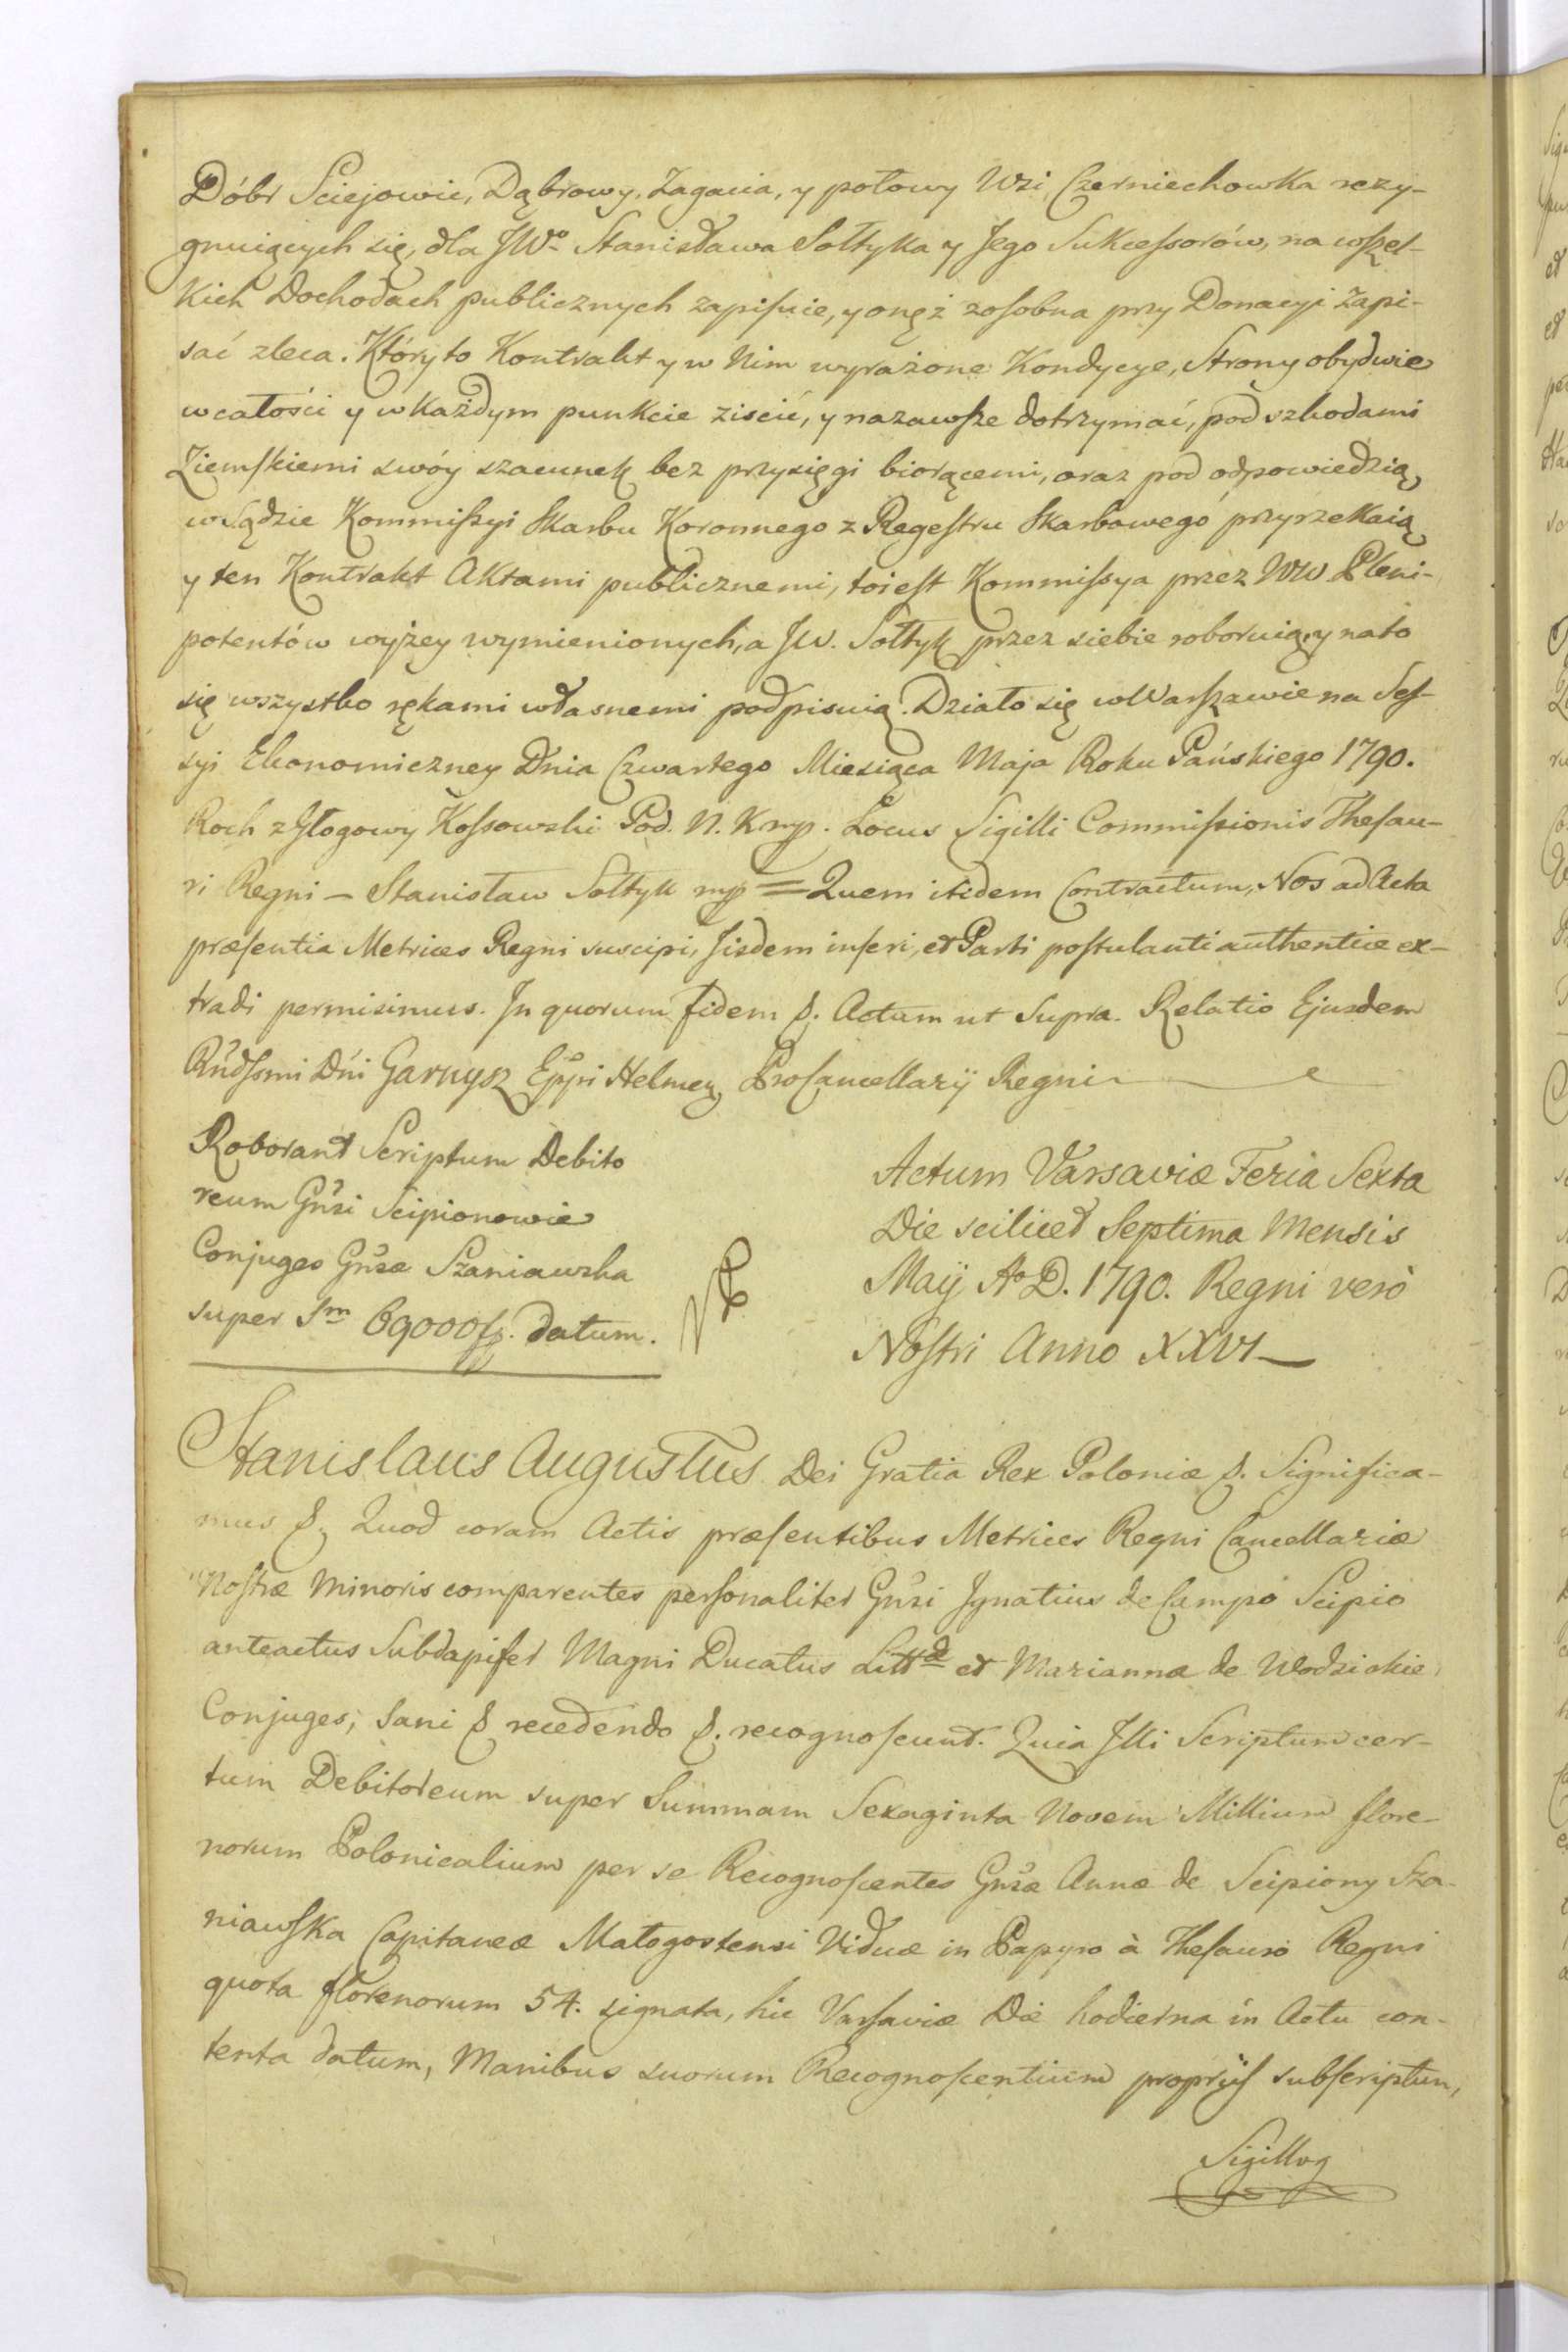 Dóbr Sciejowic, Dąbrowy, Zagacia, y połowy Wsi Czerniechowka rezy-
gnuiących się, dla JWo Stanisława Sołtyka y Jego Sukcessorów, na wszel-
kich Dochodach publicznych zapisuie, y onęż zosobna przy Donacyi zapi-
sać zleca. Który to Kontrakt y w Nim wyrażone Kondycye, Strony obydwie
wcałości y w każdym punkcie ziscić, y nazawsze dotrzymać, pod szkodami
Ziemskiemi swóy szacunek bez przysięgi biorącemi, oraz pod odpowiedzią
w Sądzie Kommissyi Skarbu Koronnego z Regestru Skarbowego przyrzekaią
y ten Kontrakt Aktami publicznemi, toiest Kommissya przez WW Pleni-
potentów wyżey wymienionych, a JW. Sołtyk przez siebie roboruią, y nato
się wszystko rękami własnemi podpisuią. Działo się w Warszawie na Ses-
syi Ekonomiczney Dnia Czwartego Miesiąca Maja Roku Pańskiego 1790.
Roch z Głogowy Kossowski Pod. N. K mp. Locus Sigilli Commissionis Thesau-
ri Regni – Stanisław Sołtyk mp = Quem itidem Contractum, Nos ad Acta
præsentia Metrices Regni suscipi, Jisdem inseri, et Parti postulanti authentice ex-
tradi permisimus. In quorum fidem &. Actum ut Supra. Relatio Ejusdem
Rndssmi Dni Garnysz Eppi Helmen, ProCancellarij Regni
Roborant Scriptum Debito
reum Gnsi Scipionowie
Conjuges Gnsæ Szaniawska
super Sm 69000 f. datum.
Actum Varsaviæ Feria Sexta
Die scilicet Septima Mensis
Maij Ao D. 1790. Regni verò
Nostri Anno XXVI
Stanislaus Augustus Dei Gratia Rex Poloniæ &. Significa-
mus &. Quod coram Actis præsentibus Metrices Regni Cancellariæ
Nostræ Minoris comparentes personaliter Gnsi Ignatius de Campo Scipio
anteactus Subdapifer Magni Ducatus Littæ et Marianna de Wodzickie
Conjuges, sani & recedendo &. recognoscunt. Quia Illi Scriptum cer-
tum Debitoreum super Summam Sexaginta Novem Millium flore-
norum Polonicalium per se Recognoscentes Gnsæ Annæ de Scipiony Sza-
niawska Capitaneæ Małogostensi Viduæ in Papyro à Thesauro Regni
quota florenorum 54. signata, hic Varsaviæ Die hodierna in Actu con-
tenta datum, Manibus suorum Recognoscentium proprijs subscriptum,